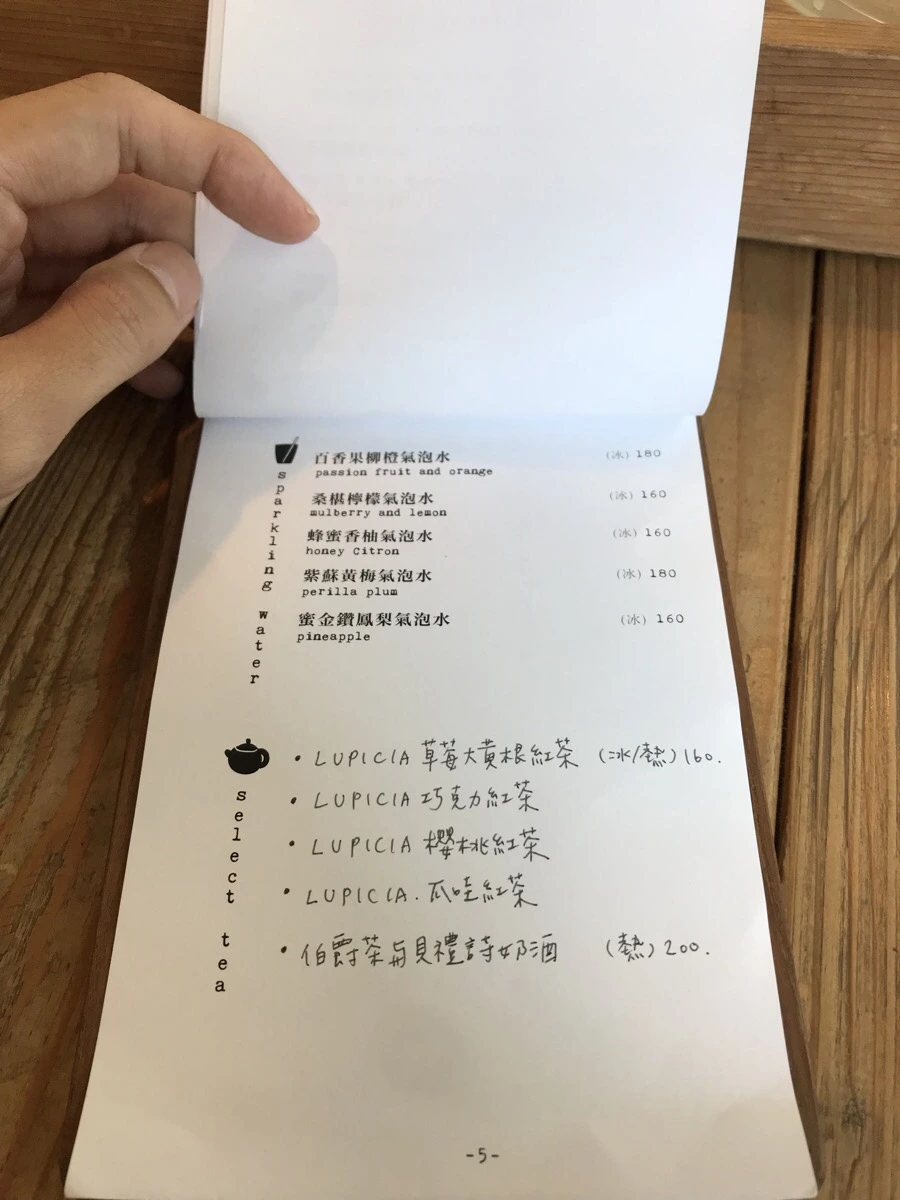 sparkling water
百香果柳橙氣泡水 (冰) 180
passion fruit and orange
桑椹檸檬氣泡水 (冰) 160
mulberry and lemon
蜂蜜香柚氣泡水 (冰) 160
honey Citron
紫蘇黃梅氣泡水 (冰) 180
perilla plum
蜜金鑽鳳梨氣泡水 (冰) 160
pineapple
select tea
• LUPICIA 草莓大黃根紅茶 (冰/熱) 160.
• LUPICIA 巧克力紅茶
• LUPICIA 櫻桃紅茶
• LUPICIA. 爪哇紅茶
• 伯爵茶與貝禮詩奶酒 (熱) 200.
-5-